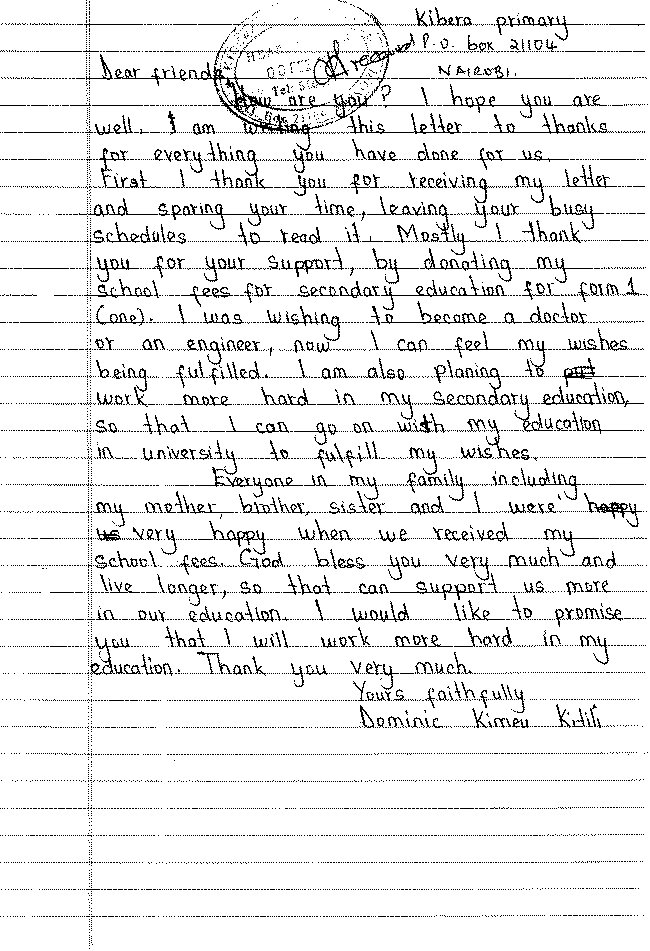 Kibera primary
received P.O. box 21104
Dear friends,
NAIROBI.
How are you? I hope you are
well. I am writing this letter to thanks
for everything you have done for us.
First I thank you for receiving my letter
and sparing your time, leaving your busy
schedules to read it. Mostly I thank
you for your support, by donating my
school fees for secondary education for form 1
(one). I was wishing to become a doctor
or an engineer, now I can feel my wishes
being fulfilled. I am also planing to put
work more hard in my secondary education,
so that I can go on with my education
in university to fulfill my wishes.
Everyone in my family including
my mother, brother, sister and I were happy
us very happy when we received my
school fees. God bless you very much and
live longer, so that can support us more
in our education. I would like to promise
you that I will work more hard in my
education. Thank you very much.
Yours faithfully
Dominic Kimeu Kitili